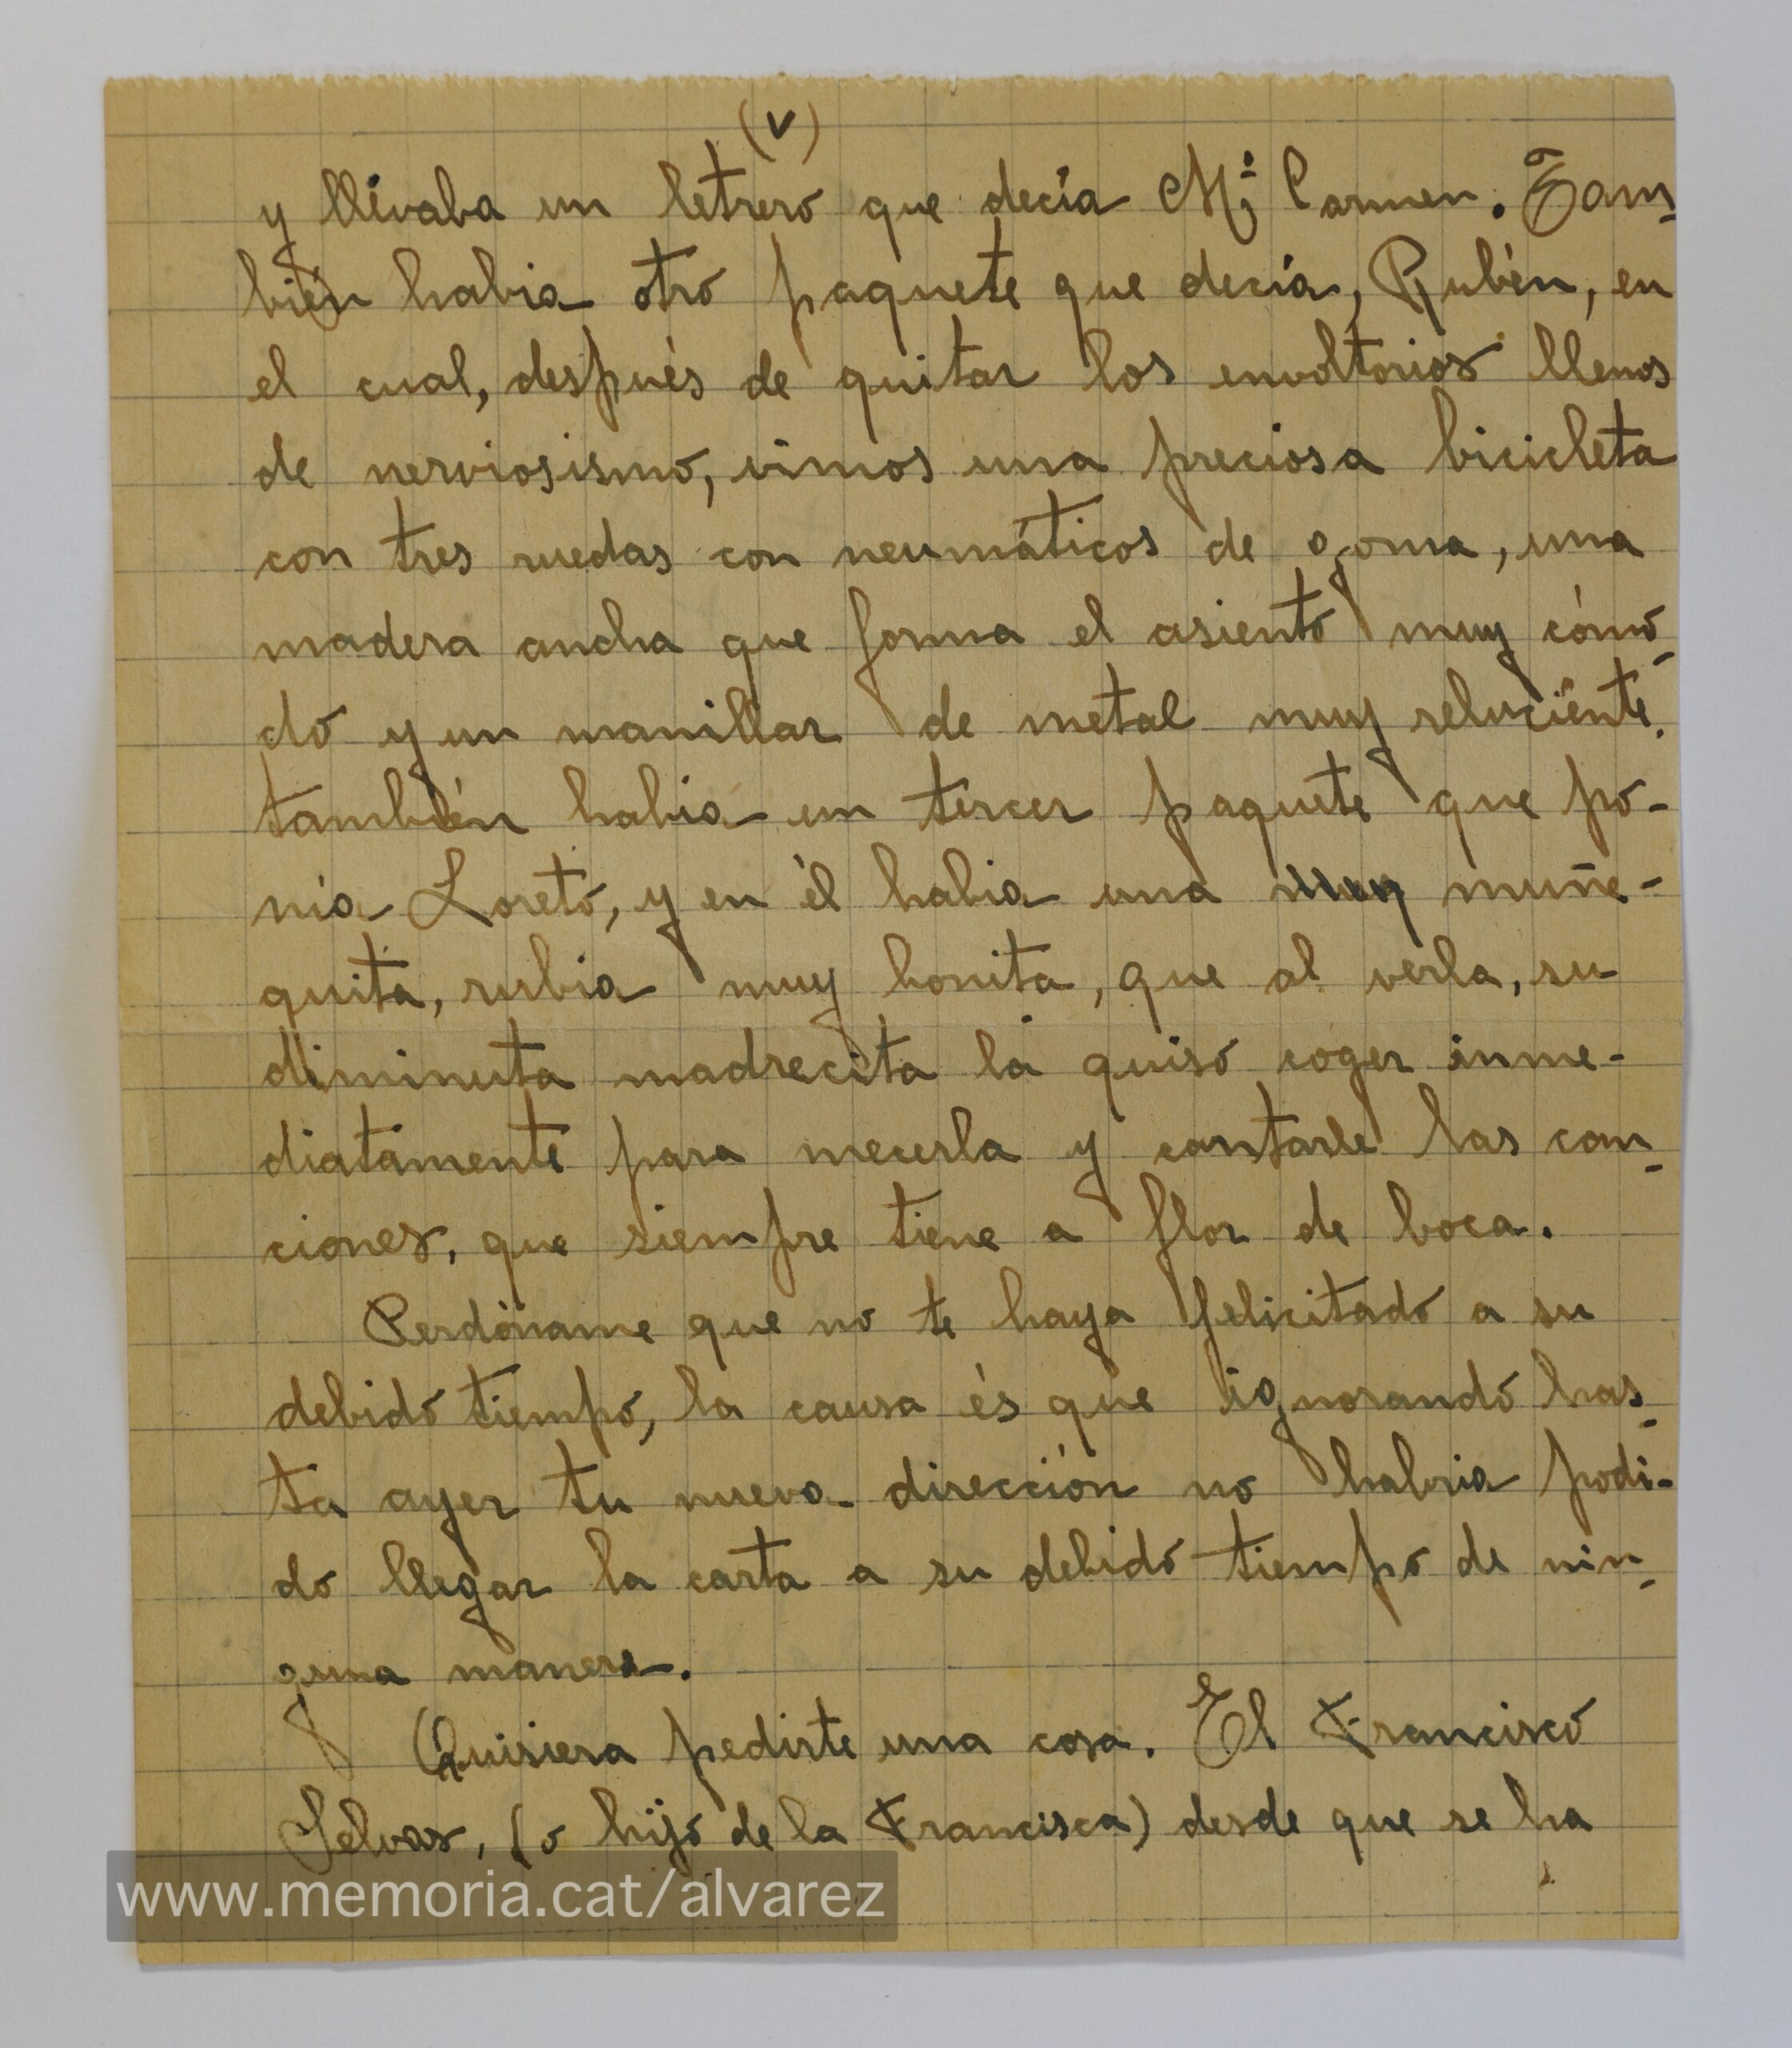 (V)
y llevaba un letrero que decía Mª Carmen. Tam-
bién habia otro paquete que decía, Rubén, en
el cual, después de quitar los envoltorios llenos
de nerviosismo, vimos una preciosa bicicleta
con tres ruedas con neumáticos de goma, una
madera ancha que forma el asiento muy cómo-
do y un manillar de metal muy reluciente.
también habia un tercer paquete que po-
nía Loreto, y en él habia una muy muñe-
quita, rubia muy bonita, que al verla, su
diminuta madrecita la quiso coger inme-
diatamente para mecerla y cantarle las can-
ciones, que siempre tiene a flor de boca.
Perdóname que no te haya felicitado a su
debido tiempo, la causa és que ignorando has-
ta ayer tu nueva dirección no habria podi-
do llegar la carta a su debido tiempo de nin-
guna manera.
Quisiera pedirte una cosa. El Francisco
Selvas, (o hijo de la Francisca) desde que se ha
www.memoria.cat/alvarez